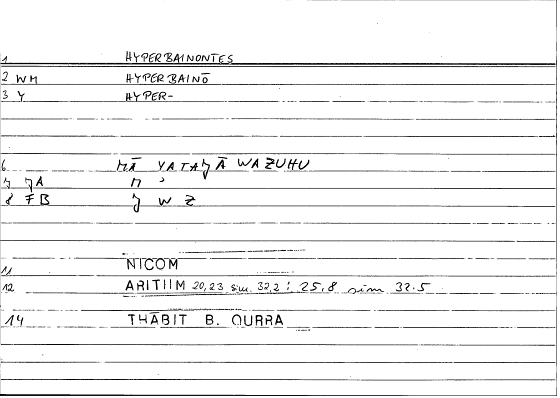 1 HYPERBAINONTES
2 WM HYPERBAINŌ
3 Y HYPER-
6 MĀ YATAǦĀWAZUHU
7 ǦA M ʾ
8 FB Ǧ W Z
11 NICOM
12 ARITIIM 20,23 sim. 32,2 : 25,8 sim 32.5
14 THĀBIT B. QURRA